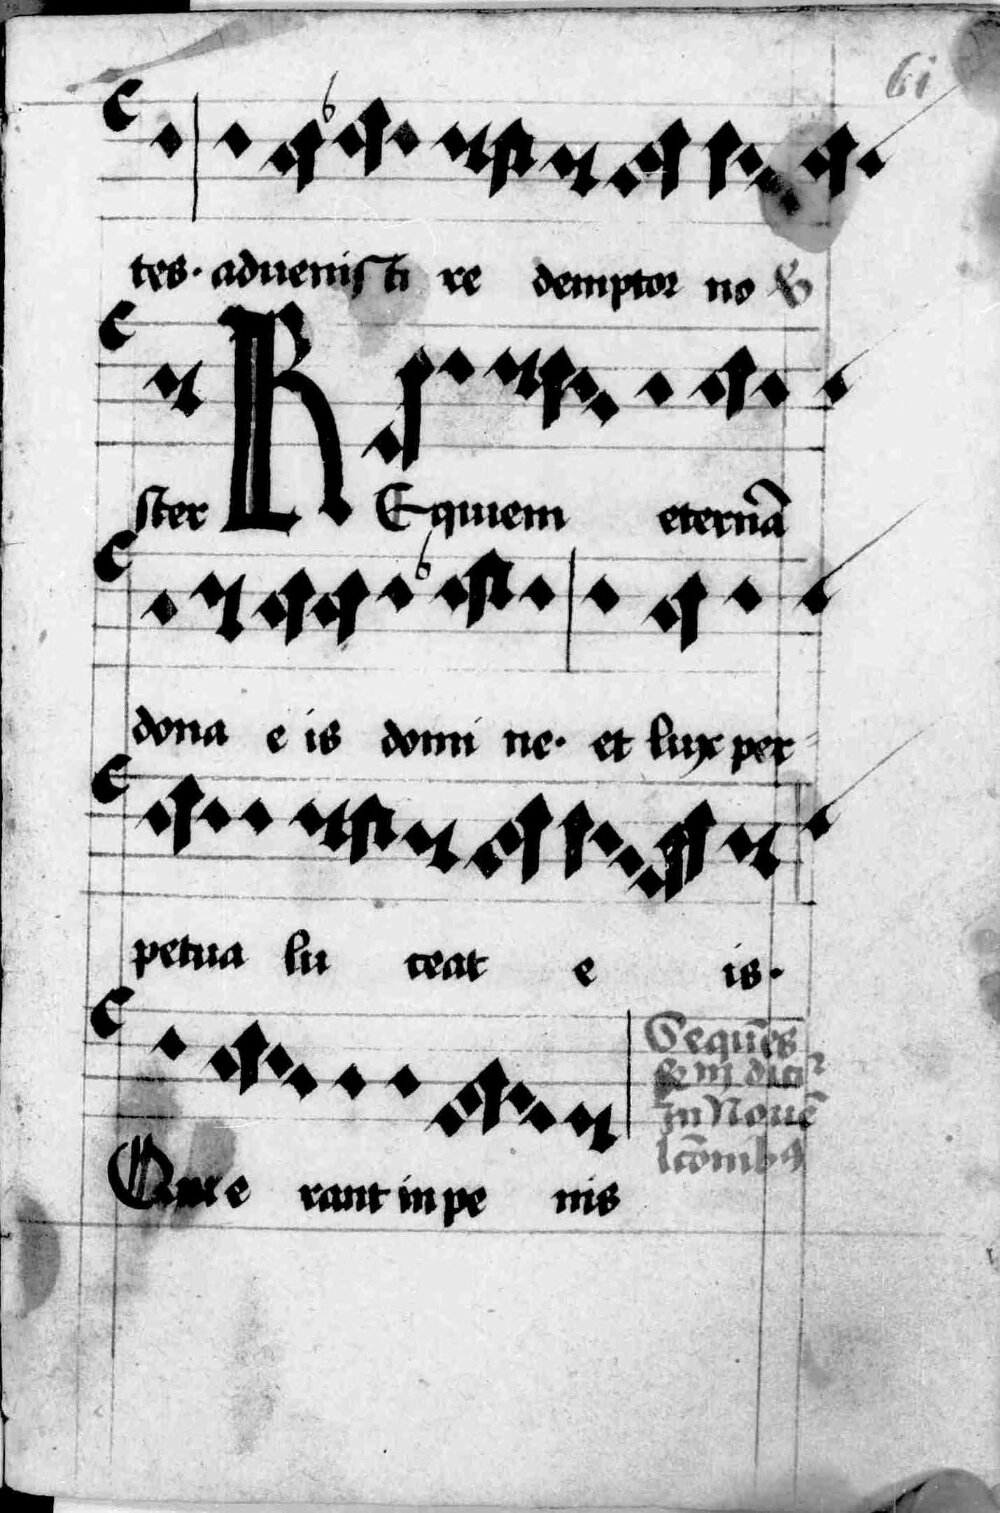 61
tes · aduenisti re demptor no
ster REquiem eternā
dona e is domi ne · et lux per
petua lu ceat e is ·
Que rant in pe nis
Sequēs
In Nouē